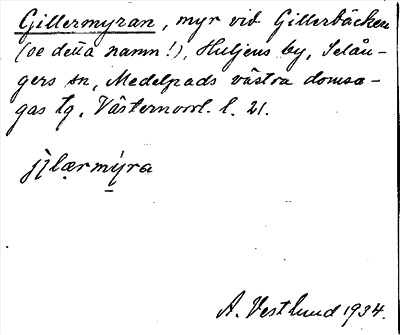 Gillermyran, myr vid Gillerbäcken
(se detta namn!), Huljens by, Selån-
gers sn, Medelpads västra domsa-
gas tg, Västernorrl. l. 21.
jilærmy̱ra
A. Vestlund 1934.